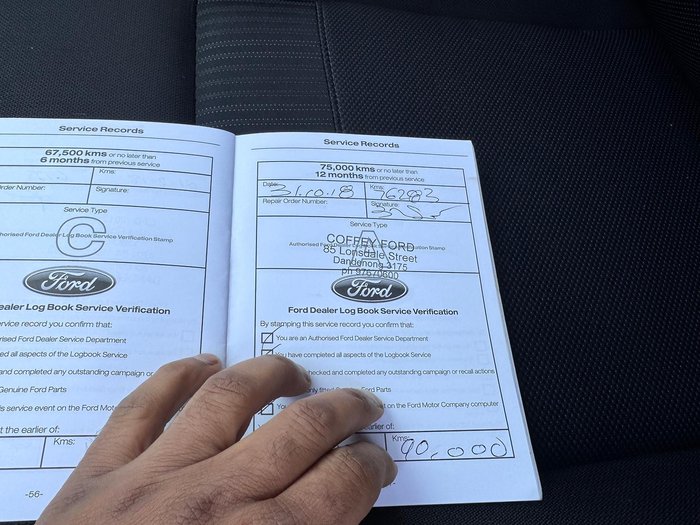 Service Records
67,500 kms or no later than
6 months from previous service
Kms:
Order Number:
Signature:
Service Type
C
Authorised Ford Dealer Log Book Service Verification Stamp
Ford
Dealer Log Book Service Verification
service record you confirm that:
Authorised Ford Dealer Service Department
completed all aspects of the Logbook Service
and completed any outstanding campaign or
Genuine Ford Parts
this service event on the Ford Mot
t the earlier of:
Kms:
-56-
Service Records
75,000 kms or no later than
12 months from previous service
Date: 31.10.18
Kms: 76283
Repair Order Number:
Signature:
Service Type
A
COFFEY FORD
85 Lonsdale Street
Dandenong 3175
ph 97670600
Ford
Ford Dealer Log Book Service Verification
By stamping this service record you confirm that:
You are an Authorised Ford Dealer Service Department
You have completed all aspects of the Logbook Service
checked and completed any outstanding campaign or recall actions
only fitted Ford Parts
on the Ford Motor Company computer
er of:
Kms: 90,000